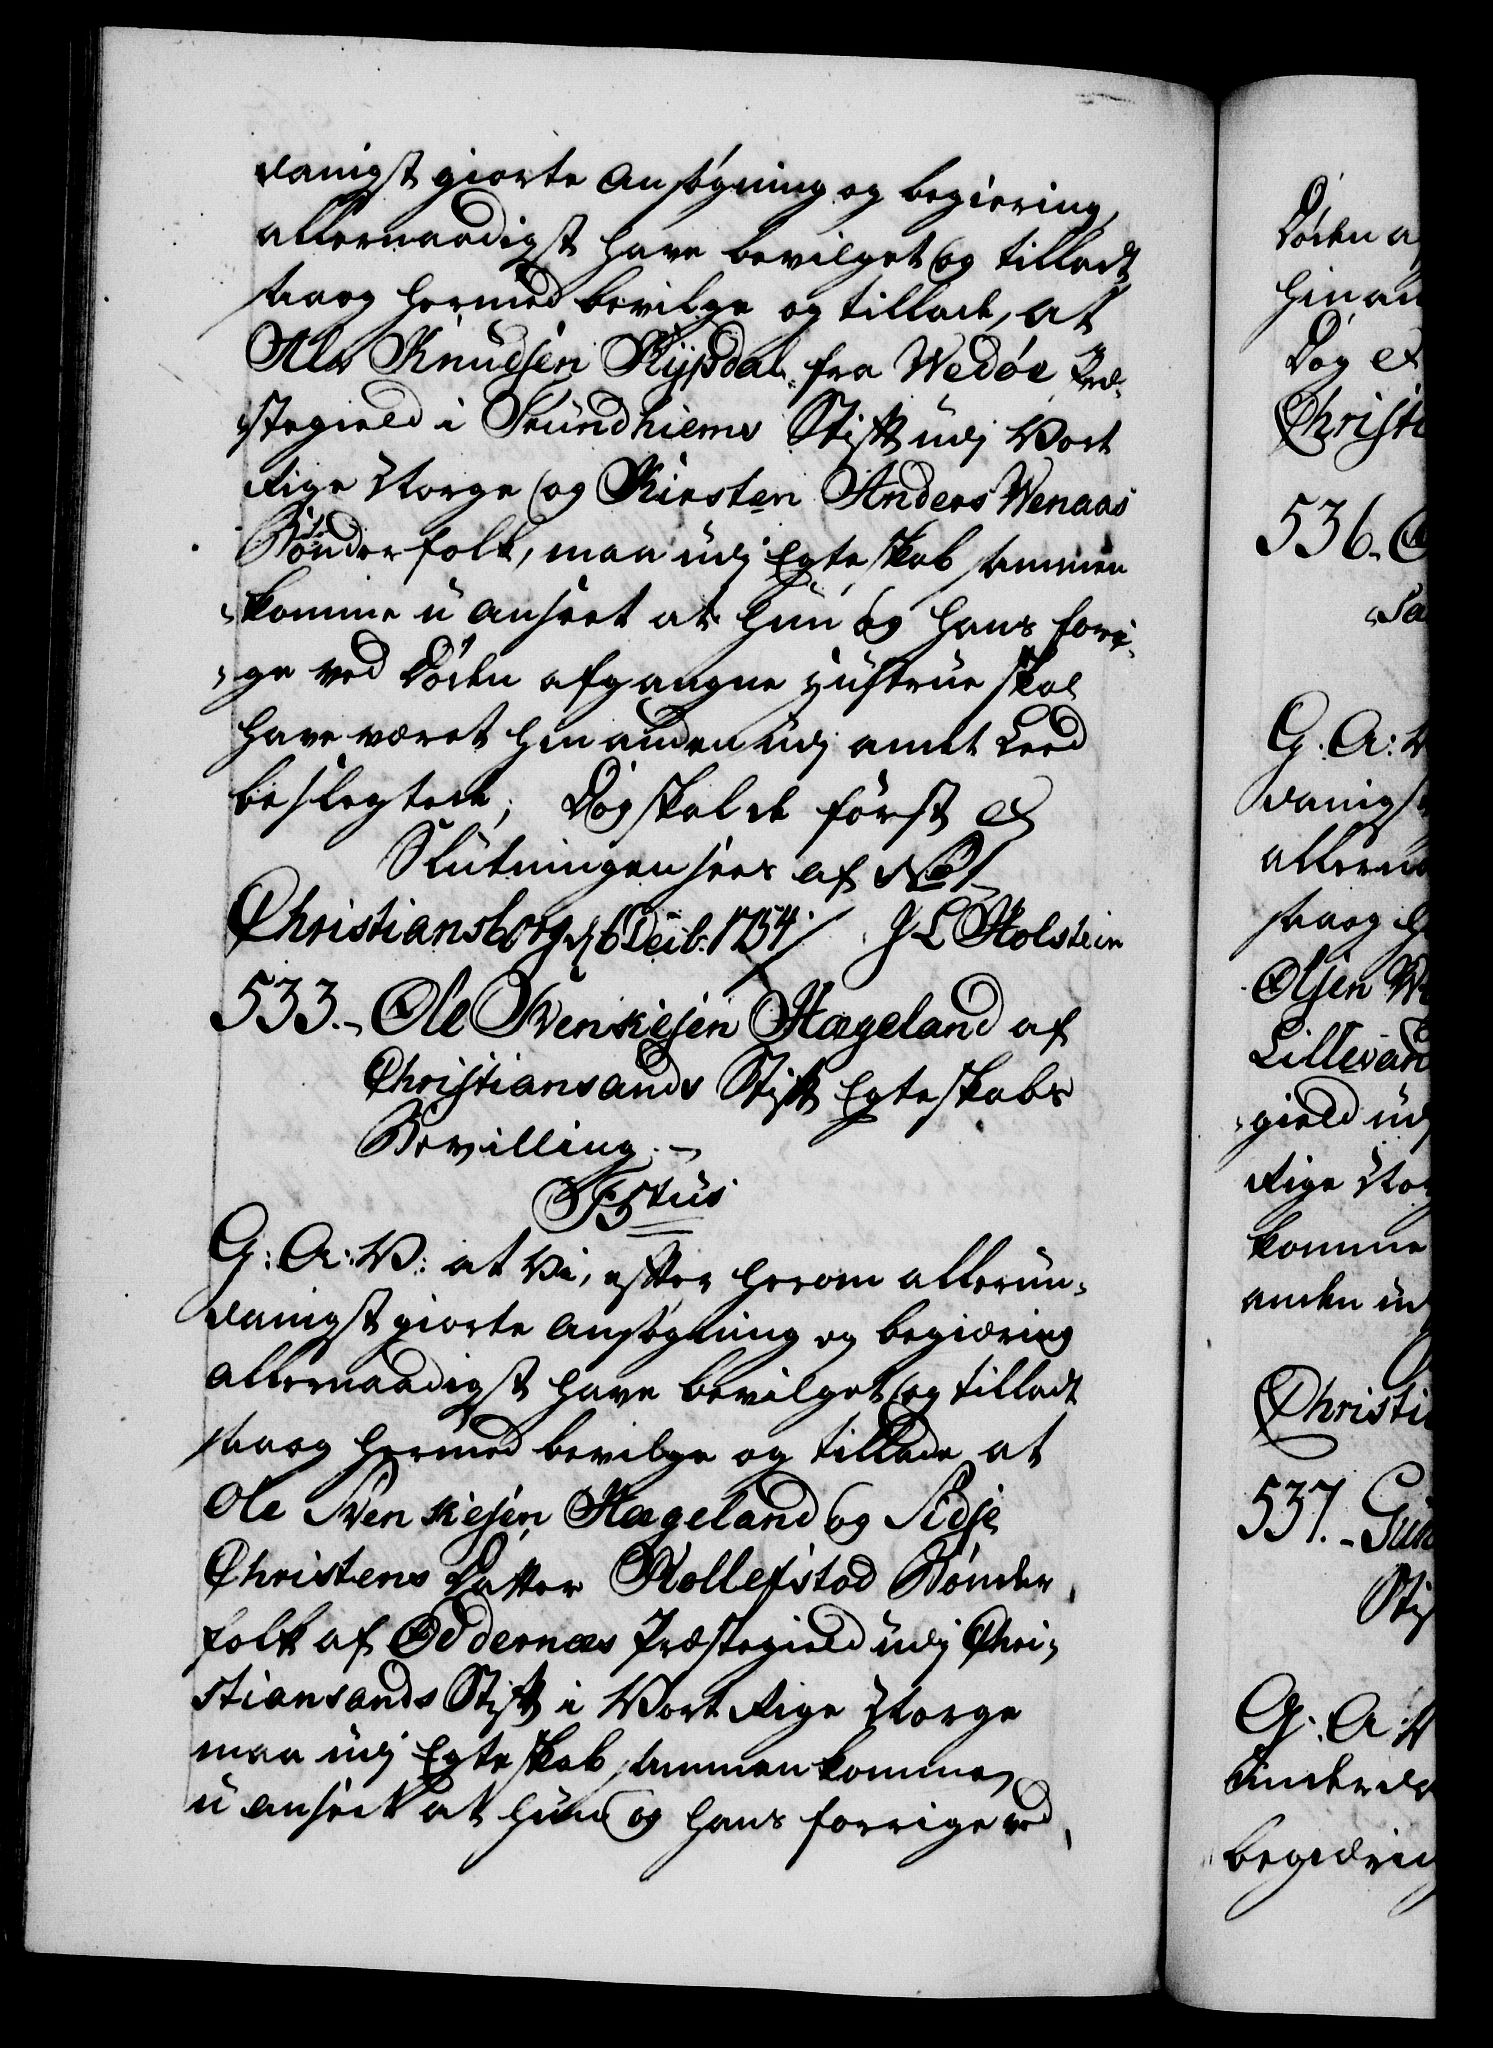 danigst giorte Ansøgning og begiering,
allernaadigst have bevilget og tilladt,
saa og hermed bevilge og tillade, at
Ole Knudsen Rypdal fra Wedøe Præ-
stegield i Trundhiems Stift udj Vort
Rige Norge og Kirsten Anders Wenaas
Bønderfolk, maa udj Egteskab sammen
-komme u anseet at hun og hans fori-
-ge ved Døden afgangne Hustrue skal
have været hinanden udj andet Leed
beslegtede; Dog skal de først &
Slutningen sees af No 1
Christiansborg d. 6 Decib. 1754 / J L Holstein
533.- Ole Svenkesen Hægeland af
Christiansands Stift Egteskabs
Bevilling.-
F5tus
G: A: V: at Vi, efter herom allerun-
danigst giorte Ansøgning og begiæring
allernaadigst have bevilget og tilladt
saa og hermed bevilge og tillade at
Ole Svenkesen Hægeland og Sidse
Christens Datter Kollefstad Bønder
folk af Oddernæs Præstegield udj Chri-
stiansands Stift i Vort Rige Norge
maa udj Egteskab sammenkomme,
u anseet at hun og hans forrige ved
Døden a
hinan
Dog et
Christi
536.
Sa
G: A: V
danigst
allerna
saa og h
Olsen
Lillevand
-gield udj
Rige Nor
komme
anden ud
Christi
537.- Gun
Sti
G: A: V
underda
begiæring